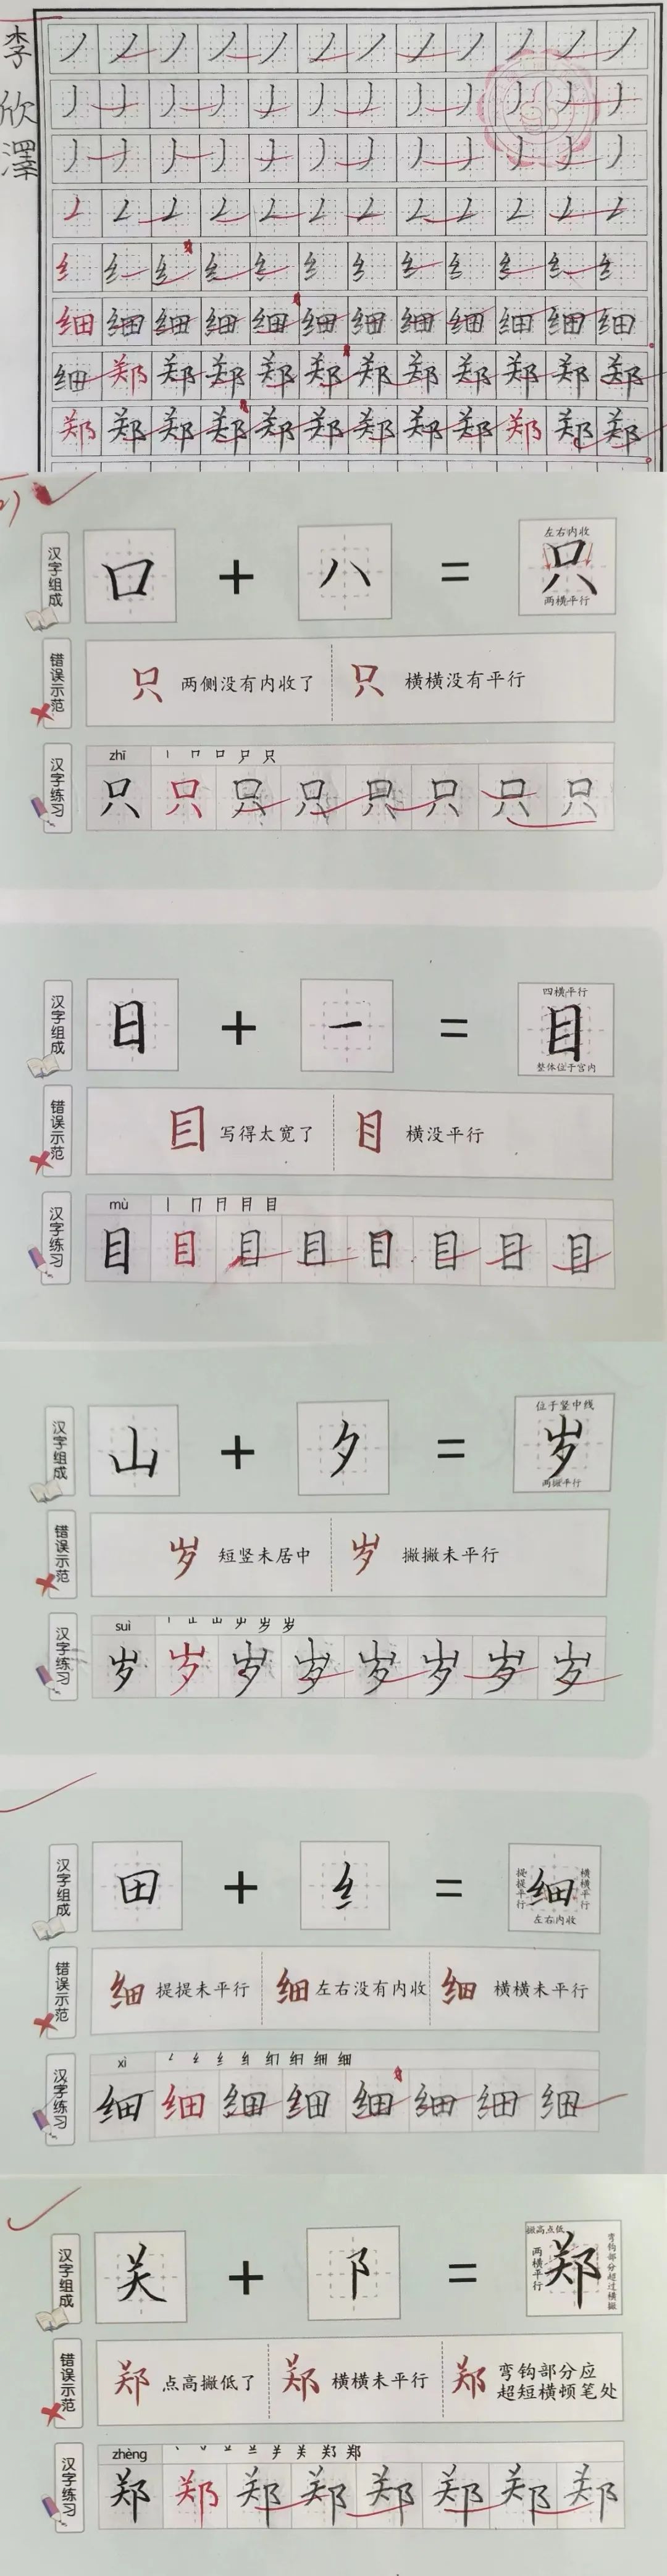 李欣澤
丿 丿 丿 丿 丿 丿 丿 丿 丿 丿 丿 丿
丿 丿 丿 丿 丿 丿 丿 丿 丿 丿 丿 丿
丿 丿 丿 丿 丿 丿 丿 丿 丿 丿 丿 丿
纟 纟 纟 纟 纟 纟 纟 纟 纟 纟 纟 纟
细 细 细 细 细 细 细 细 细 细 细 细
细 郑 郑 郑 郑 郑 郑 郑 郑 郑 郑 郑
郑 郑 郑 郑 郑 郑 郑 郑 郑 郑 郑 郑
汉字组成 口 + 八 = 左右内收 只 两横平行
错误示范 只 两侧没有内收了 只 横横没有平行
汉字练习
zhī 丨 口 只
只 只 只 只 只 只 只 只
汉字组成 日 + 一 = 四横平行 目 整体位于宫内
错误示范 目 写得太宽了 目 横没平行
汉字练习
mù 丨 冂 月 目 目
目 目 目 目 目 目 目 目
汉字组成 山 + 夕 = 位于竖中线 岁 两撇平行
错误示范 岁 短竖未居中 岁 撇撇未平行
汉字练习
suì 丨 山 山 岁 岁
岁 岁 岁 岁 岁 岁 岁 岁
汉字组成 田 + 纟 = 提提平行 细 横横平行 左右内收
错误示范 细 提提未平行 细 左右没有内收 细 横横未平行
汉字练习
xì 纟 纟 细 细
细 细 细 细 细 细 细 细
汉字组成 关 + 阝 = 撇高点低 两横平行 郑 弯钩部分超过横撇
错误示范 郑 点高撇低了 郑 横横未平行 郑 弯钩部分应
超短横顿笔处
汉字练习
zhèng 丶 丷 关 郑 郑
郑 郑 郑 郑 郑 郑 郑 郑